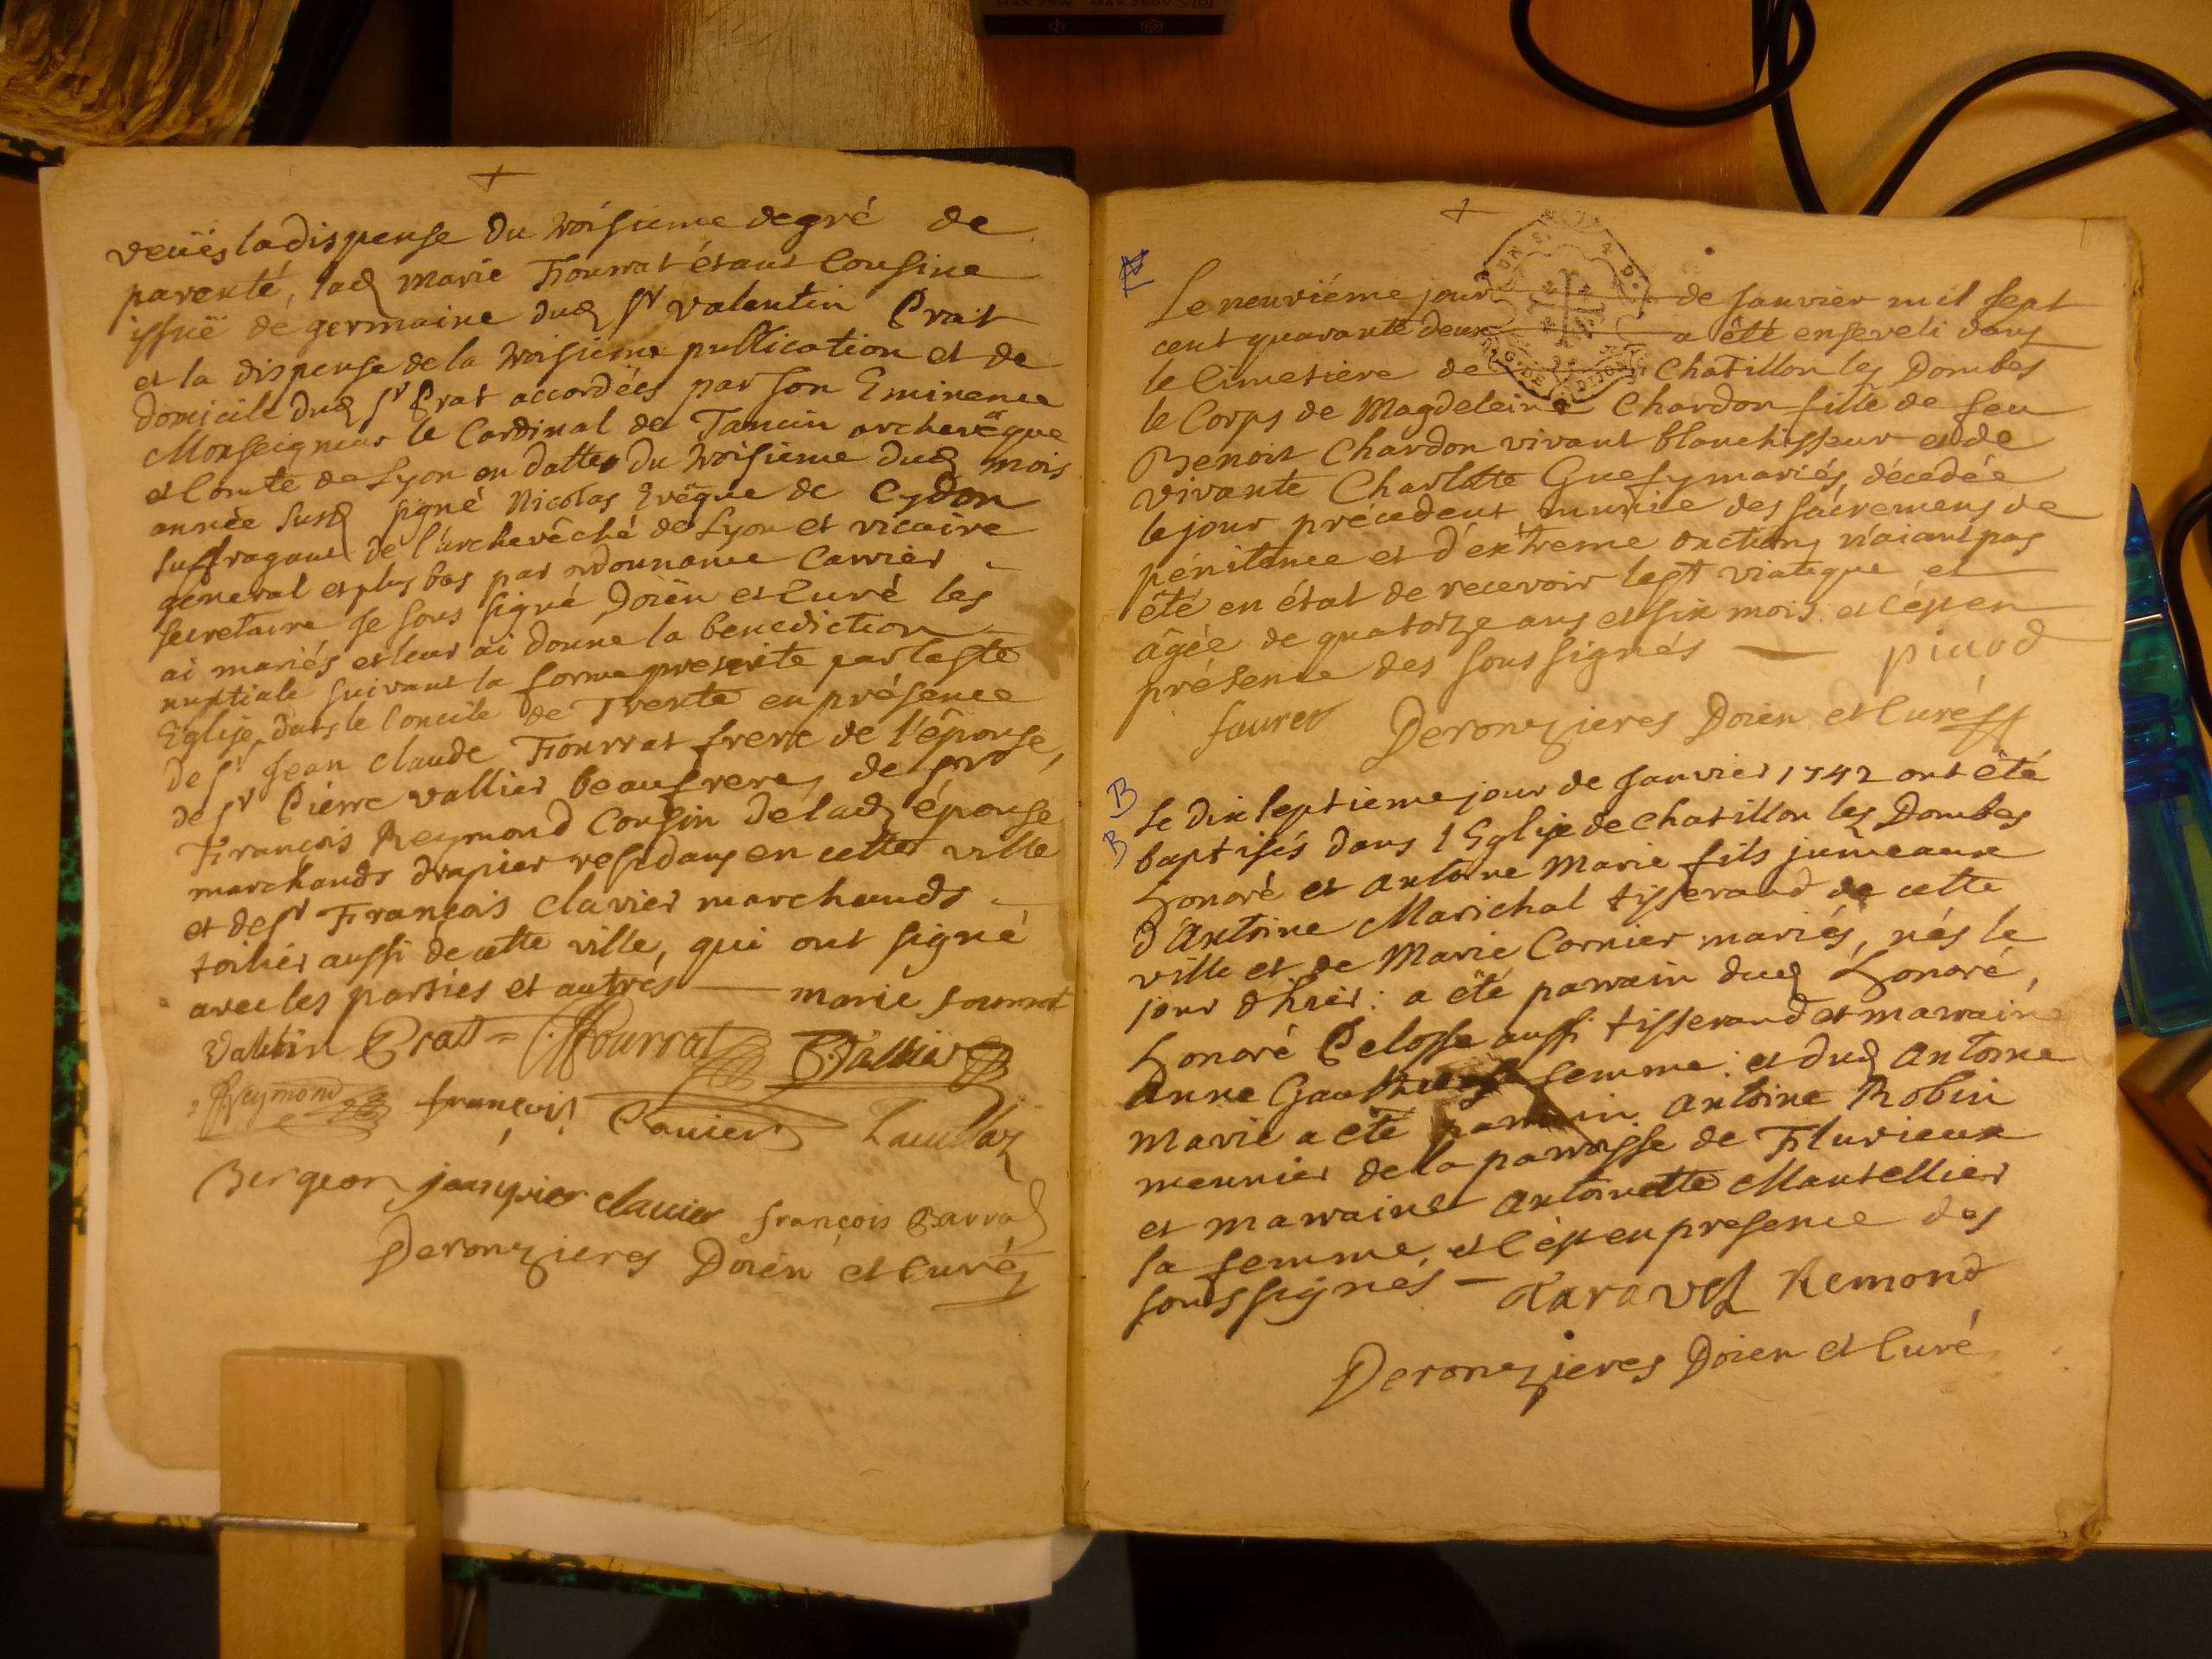 veües la dispense du troisieme degré de
parenté, lad marie Fiourrat étant Cousine
issuë de germaine dud sr valentin Prat
et la dispense de la troisieme publication et de
domicile dud sr Prat accordées par son Eminence
Monseigneur le Cardinal de Tancin archevêque
et Comte de Lyon en datte du troisieme dud mois
année susd signé Nicolas Evêque de Cydon
suffragant de l'archevêché de Lyon et vicaire
general et plus bas par ordonnance Carrier
secretaire Je sous signé Doïen et Curé les
ai mariés et leur ai donné la benediction
nuptiale suivant la forme prescrite par la ste
Eglise dans le Concile de Trente en présence
de sr Jean claude Fiourrat frere de l'épouse,
de sr Pierre vallier beaufrere, de sr
François Reymond Cousin de lad épouse
marchands drapier residans en cette ville
et de sr François clavier marchands
toilier aussi de cette ville, qui ont signé
avec les parties et autres — marie fiourrat
Valentin Prat = fiourrat P. Vallier
Reymond françois Clavier
Bergeon jampier clavier françois Barral
Deronzieres Doïen et Curé
Le neuviéme jour de Janvier mil sept
cent quarante deux a été enseveli dans
le Cimetiére de Chatillon les Dombes
le Corps de Magdeleine Chardon fille de feu
Benoit Chardon vivant blanchisseur et de
vivante Charlotte Guefy mariés, décédée
le jour précedent munie des sacremens de
pénitence et d'extreme onction, n'aiant pas
été en état de recevoir le st viatique et
âgée de quatorze ans et six mois et c'ést en
présence des sous signés — picod
faurer Deronzieres Doïen et Curé
B
Le dix septieme jour de Janvier 1742 ont êté
B
baptisés dans l'Eglise de chatillon les Dombes
honoré et antoine Marie fils jumeaux
d'Antoine Marichal tisserand de cette
ville et de Marie Cornier mariés, nés le
jour d'hier : a été parrain dud honoré,
honoré Pelosse aussi tisserand et marraine
anne Gauthier sa femme : et dud Antoine
Marie a été parrain antoine Robin
meunier de la parroisse de Flurieux
et marraine antoinette Mantellier
sa femme, et c'ést en presence des
sous signés — Taravel Remond
Deronzieres Doïen et Curé